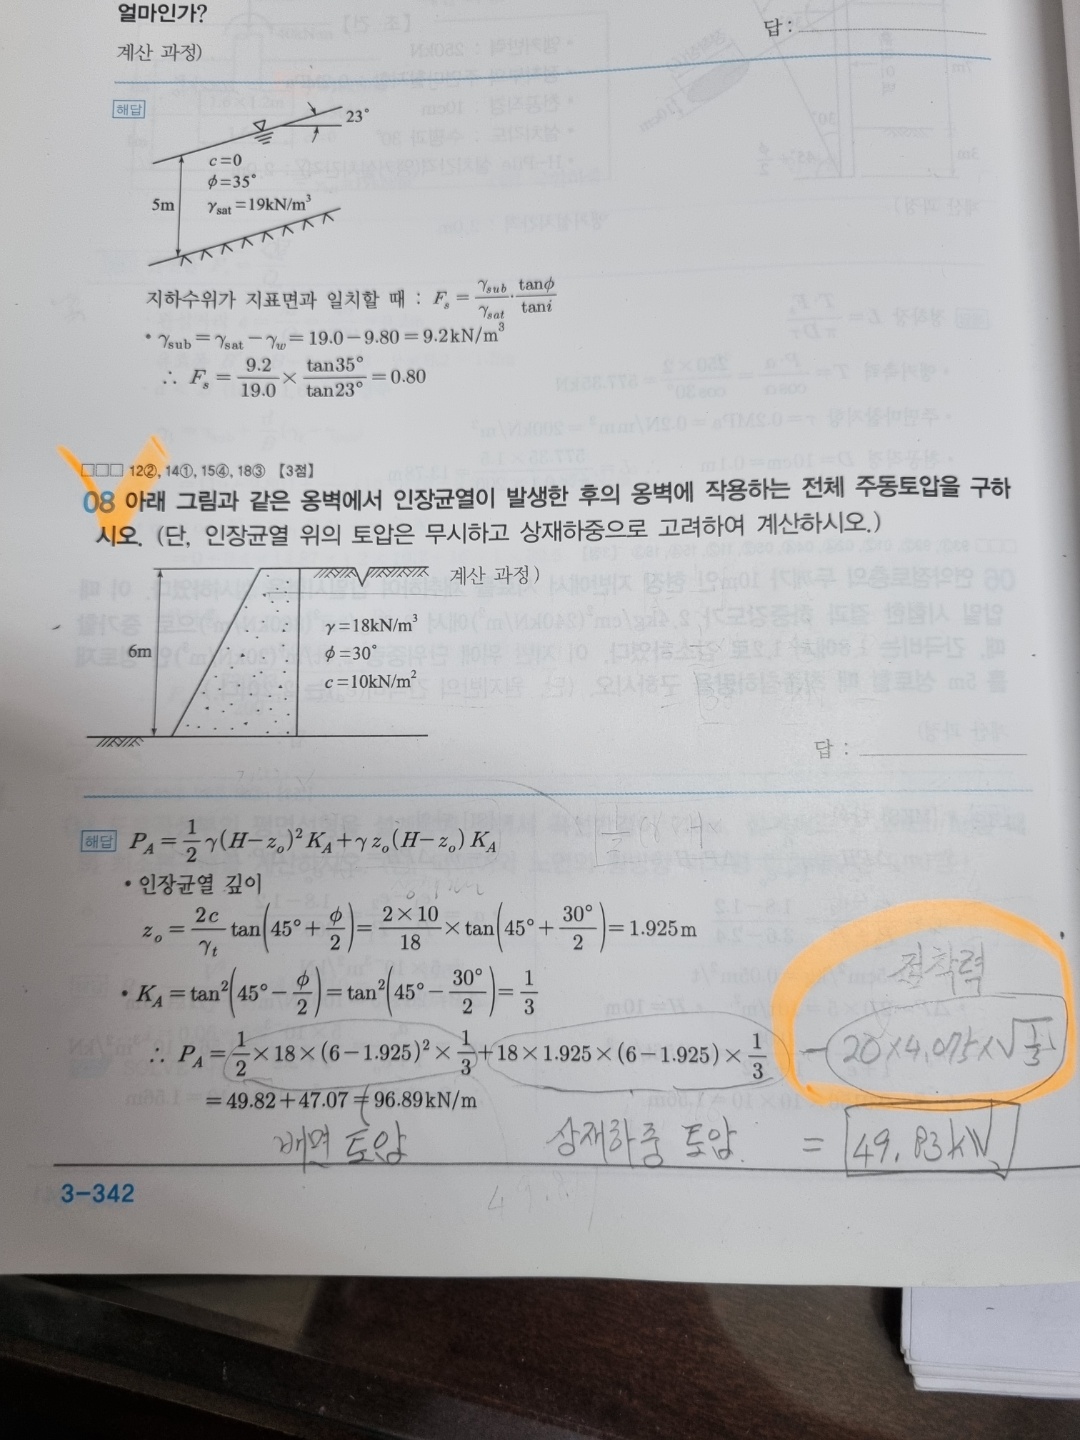 얼마인가?
계산 과정)
답 :
해답
23°
c=0
ϕ=35°
5m
γsat=19kN/m³
지하수위가 지표면과 일치할 때 : Fs = γsub/γsat · tanϕ/tani
• γsub = γsat − γw = 19.0 − 9.80 = 9.2kN/m³
∴ Fs = 9.2/19.0 × tan35°/tan23° = 0.80
□□□ 12②, 14①, 15④, 18③ 【3점】
08 아래 그림과 같은 옹벽에서 인장균열이 발생한 후의 옹벽에 작용하는 전체 주동토압을 구하
시오. (단, 인장균열 위의 토압은 무시하고 상재하중으로 고려하여 계산하시오.)
계산 과정)
γ=18kN/m³
6m
ϕ=30°
c=10kN/m²
답 :
해답 P_A = 1/2 γ(H−z_o)² K_A + γ z_o (H−z_o) K_A
• 인장균열 깊이
z_o = 2c/γt tan(45° + ϕ/2) = 2×10/18 × tan(45° + 30°/2) = 1.925m
• K_A = tan²(45° − ϕ/2) = tan²(45° − 30°/2) = 1/3
점착력
∴ P_A = 1/2 × 18 × (6−1.925)² × 1/3 + 18 × 1.925 × (6−1.925) × 1/3 − 20×4.075×√1/3
= 49.82 + 47.07 = 96.89kN/m
배면 토압 상재하중 토압 = 49.83kN
3-342